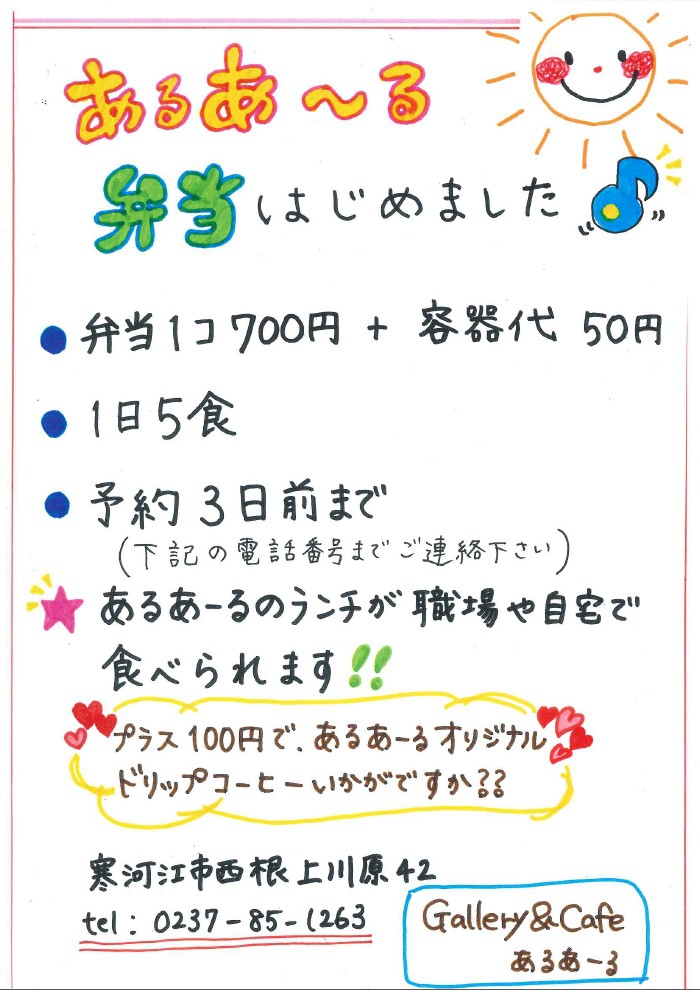 あるあ～る
弁当はじめました
● 弁当1コ700円 + 容器代 50円
● 1日5食
● 予約 3日前まで
(下記の電話番号までご連絡下さい)
★ あるあーるのランチが職場や自宅で
食べられます!!
プラス100円で、あるあーるオリジナル
ドリップコーヒーいかがですか??
寒河江市西根上川原42
tel: 0237-85-1263
Gallery&Cafe
あるあーる